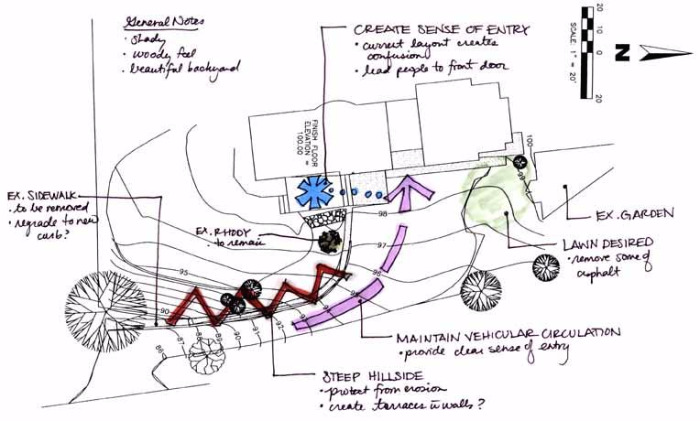 General Notes
• shady
• woody feel
• beautiful backyard
CREATE SENSE OF ENTRY
• current layout creates
confusion
• lead people to front door
20
10
0
20
SCALE: 1" = 20'
N
FINISH FLOOR
ELEVATION =
100.00
100
99
98
97
96
95
90
EX. SIDEWALK
• to be removed
• regrade to new
curb?
EX. RHODY
to remain
EX. GARDEN
LAWN DESIRED
• remove some of
asphalt
MAINTAIN VEHICULAR CIRCULATION
• provide clear sense of entry
STEEP HILLSIDE
• protect from erosion
• create terraces w walls?